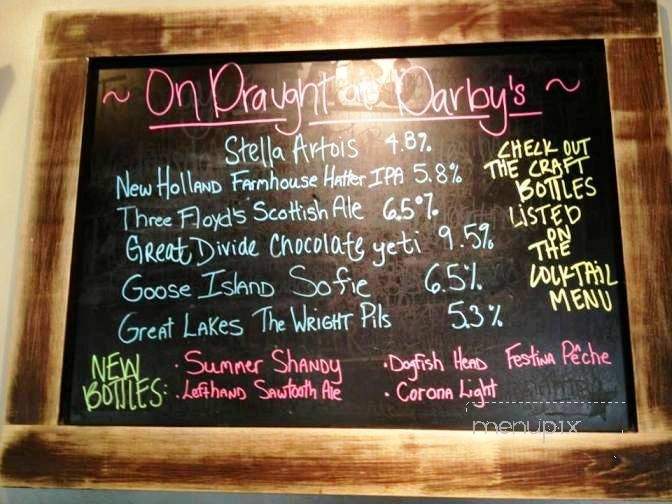 ~ On Draught at Darby's ~
Stella Artois 4.8%
New Holland Farmhouse Hatter IPA 5.8%
Three Floyd's Scottish Ale 6.5%
Great Divide Chocolate yeti 9.5%
Goose Island Sofie 6.5%
Great Lakes The Wright Pils 5.3%
CHECK OUT
THE CRAFT
BOTTLES
LISTED
ON
THE
COCKTAIL
MENU
NEW
BOTTLES:
· Summer Shandy
· Lefthand Sawtooth Ale
· Dogfish Head Festina Pêche
· Corona Light
menupix